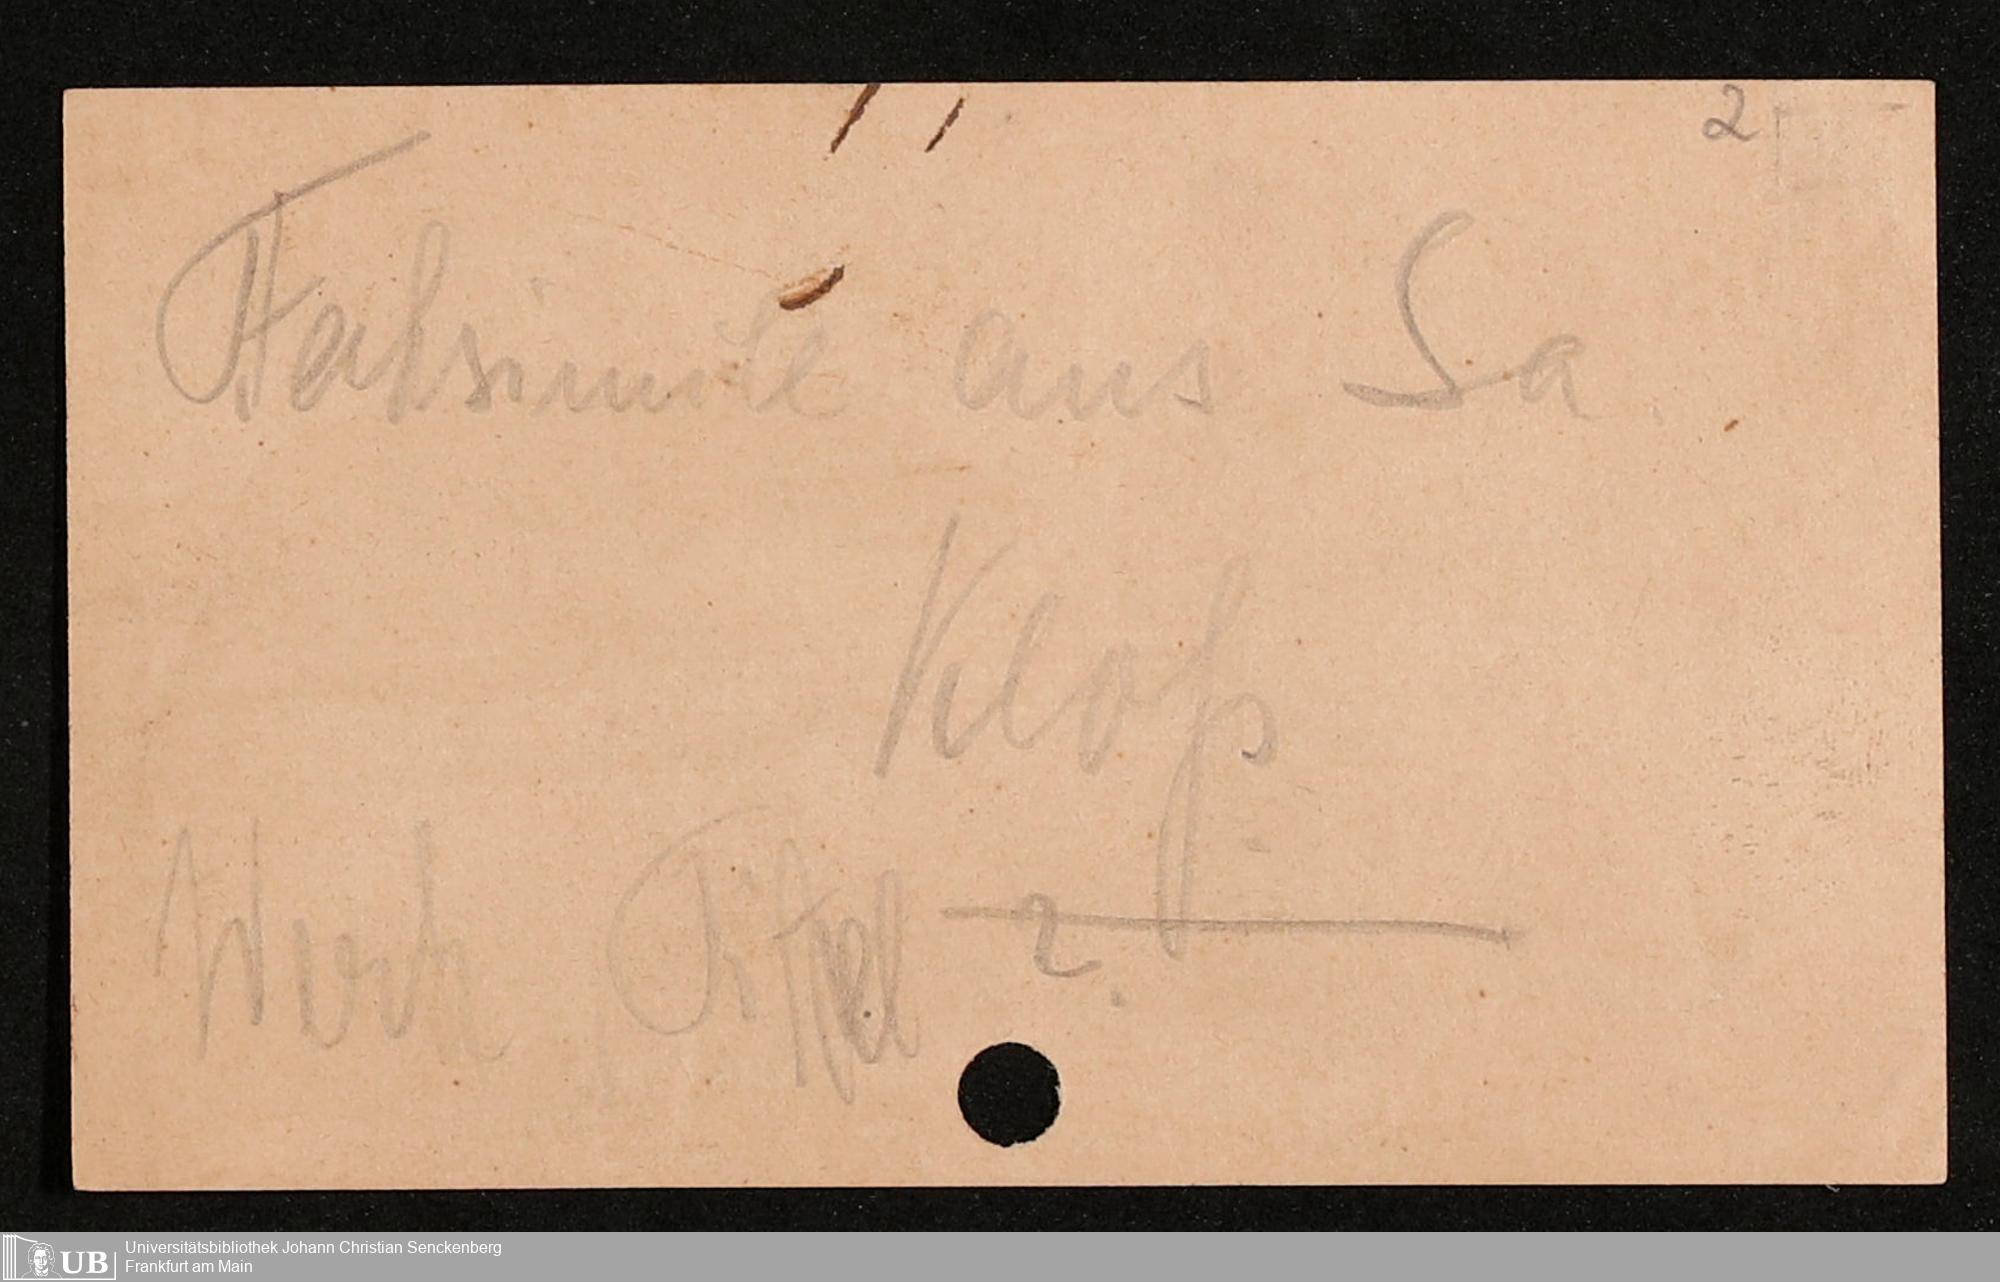 2
Faksimile aus Sa.
Kloß.
Werk Titel ?
UB
Universitätsbibliothek Johann Christian Senckenberg
Frankfurt am Main